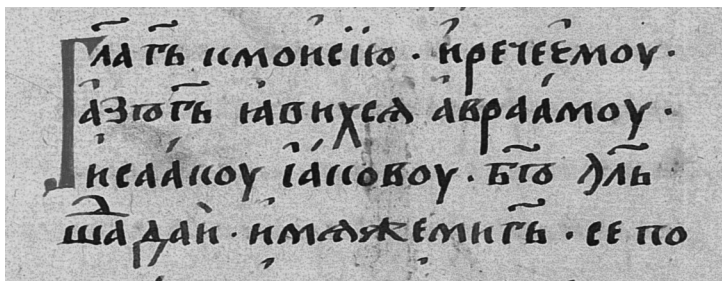 Гл҃а г҃ь кмоисїю · и҆рече є҆моу ·
а҆зъг҃ь ꙗ҆вихсѧ а҆враа́моу ·
и҆саа́коу і҆а́ковоу · бг҃ъ
шадаи · и҆мѧжемиг҃ь · се по